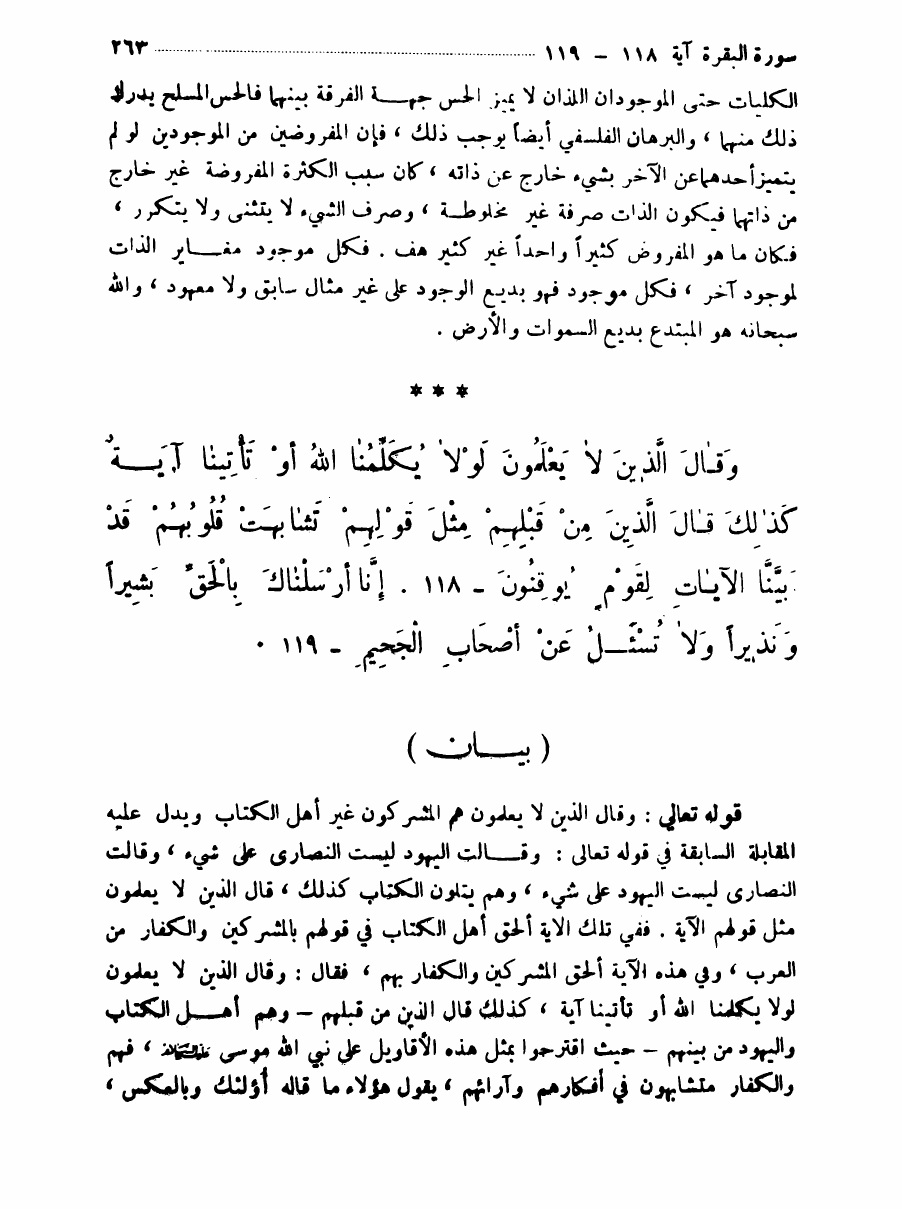 سورة البقرة آية ١١٨ – ١١٩ ........................ ٢٦٣
الكليات حتى الموجودان اللذان لا يميز الحس جهـــة الفرقة بينهما فالحس المسلح يدرك
ذلك منهما ، والبرهان الفلسفي أيضاً يوجب ذلك ، فإن المفروضين من الموجودين لو لم
يتميز أحدهما عن الآخر بشيء خارج عن ذاته ، كان سبب الكثرة المفروضة غير خارج
من ذاتهما فيكون الذات صرفة غير مخلوطـة ، وصرف الشيء لا يتثنى ولا يتكرر ،
فكان ما هو المفروض كثيراً واحداً غير كثير هف . فكل موجود مغــاير الذات
لموجود آخر ، فكل موجود فهو بديع الوجود على غير مثال سابق ولا معهود ، والله
سبحانه هو المبتدع بديع السموات والأرض .
* * *
وَقٰالَ الَّذِينَ لاٰ يَعْلَمُونَ لَوْلاٰ يُكَلِّمُنٰا اللهُ أَوْ تَأْتِينٰا آيَــةٌ
كَذٰلِكَ قٰالَ الَّذِينَ مِنْ قَبْلِهِمْ مِثْلَ قَوْلِهِمْ تَشٰابَهَتْ قُلُوبُهُمْ قَدْ
بَيَّنَّا الآيٰاتِ لِقَوْمٍ يُوقِنُونَ – ١١٨ . إِنَّا أَرْسَلْنٰاكَ بِالْحَقِّ بَشِيراً
وَنَذِيراً وَلاٰ تُسْئَــلُ عَنْ أَصْحَابِ الْجَحِيمِ – ١١٩ .
( بيـــان )
قوله تعالى : وقال الذين لا يعلمون هم المشركون غير أهل الكتاب ويدل عليه
المقابلة السابقة في قوله تعالى : وقـــالت اليهود ليست النصارى على شيء ، وقالت
النصارى ليست اليهود على شيء ، وهم يتلون الكتاب كذلك ، قال الذين لا يعلمون
مثل قولهم الآية . ففي تلك الاية ألحق أهل الكتاب في قولهم بالمشركين والكفار من
العرب ، وفي هذه الآية ألحق المشركين والكفار بهم ، فقال : وقال الذين لا يعلمون
لولا يكلمنا الله أو تأتينا آية ، كذلك قال الذين من قبلهم – وهم أهــل الكتاب
واليهود من بينهم – حيث اقترحوا بمثل هذه الأقاويل على نبي الله موسى عليه السلام ، فهم
والكفار متشابهون في أفكارهم وآرائهم ، يقول هؤلاء ما قاله أُولئك وبالعكس ،